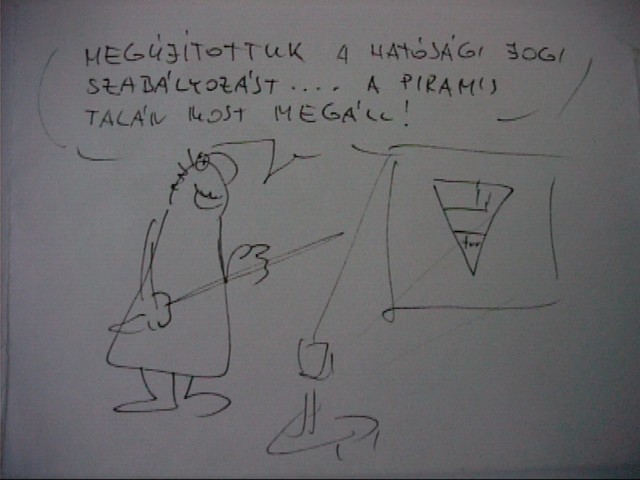 MEGÚJÍTOTTUK A HATÓSÁGI JOGI
SZABÁLYOZÁST.... A PIRAMIS
TALÁN MOST MEGÁLL!